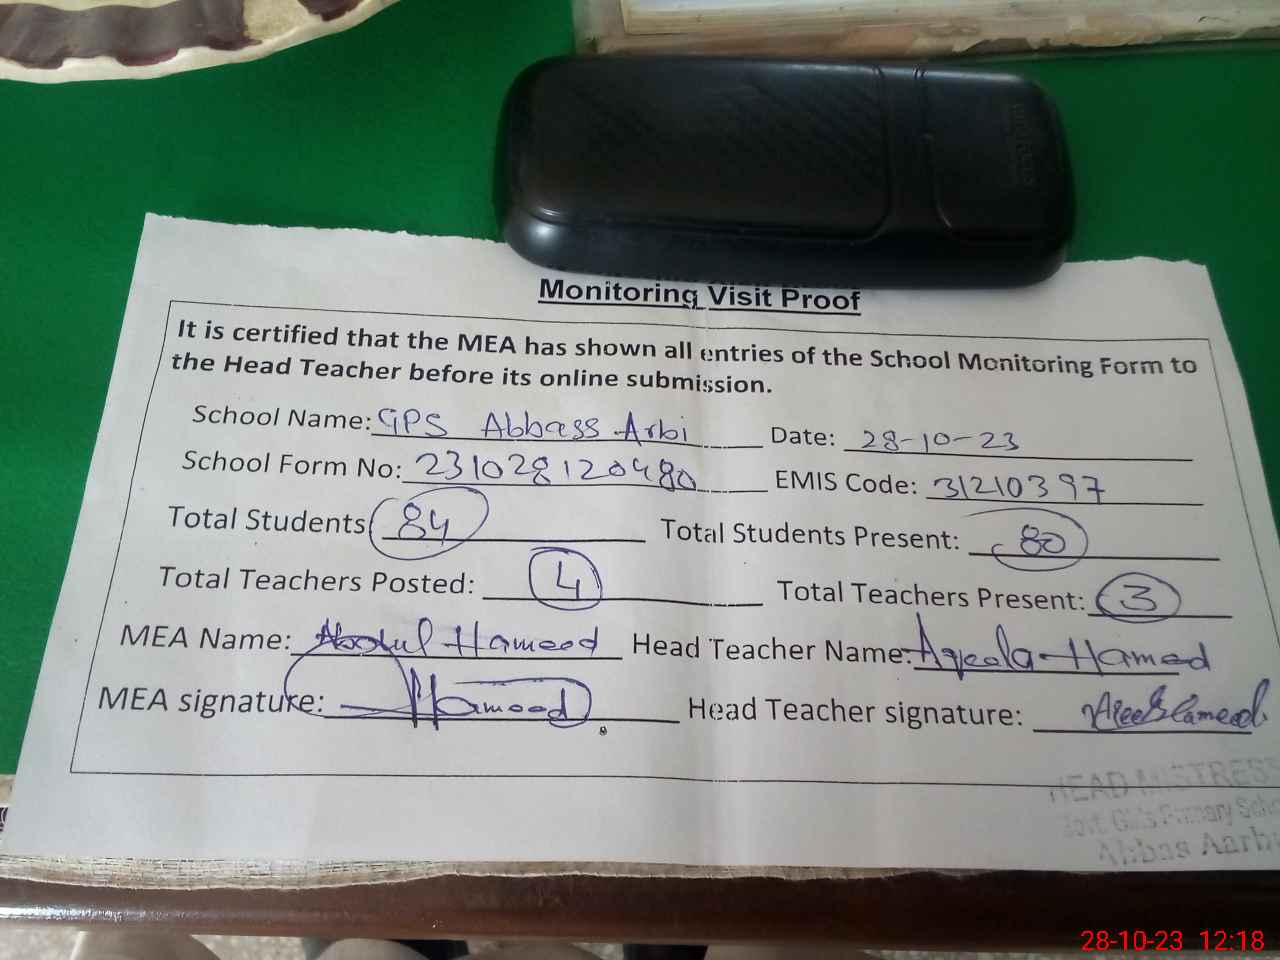 Monitoring Visit Proof
It is certified that the MEA has shown all entries of the School Monitoring Form to
the Head Teacher before its online submission.
School Name: GPS Abbass Arbi Date: 28-10-23
School Form No: 231028120480 EMIS Code: 31210397
Total Students 84 Total Students Present: 80
Total Teachers Posted: 4 Total Teachers Present: 3
MEA Name: Abdul Hameed Head Teacher Name: Aqeela Hamed
MEA signature: Hameed Head Teacher signature:
HEAD MISTRESS
Govt. Girls Primary Scho
Abbas Aarb
28-10-23 12:18